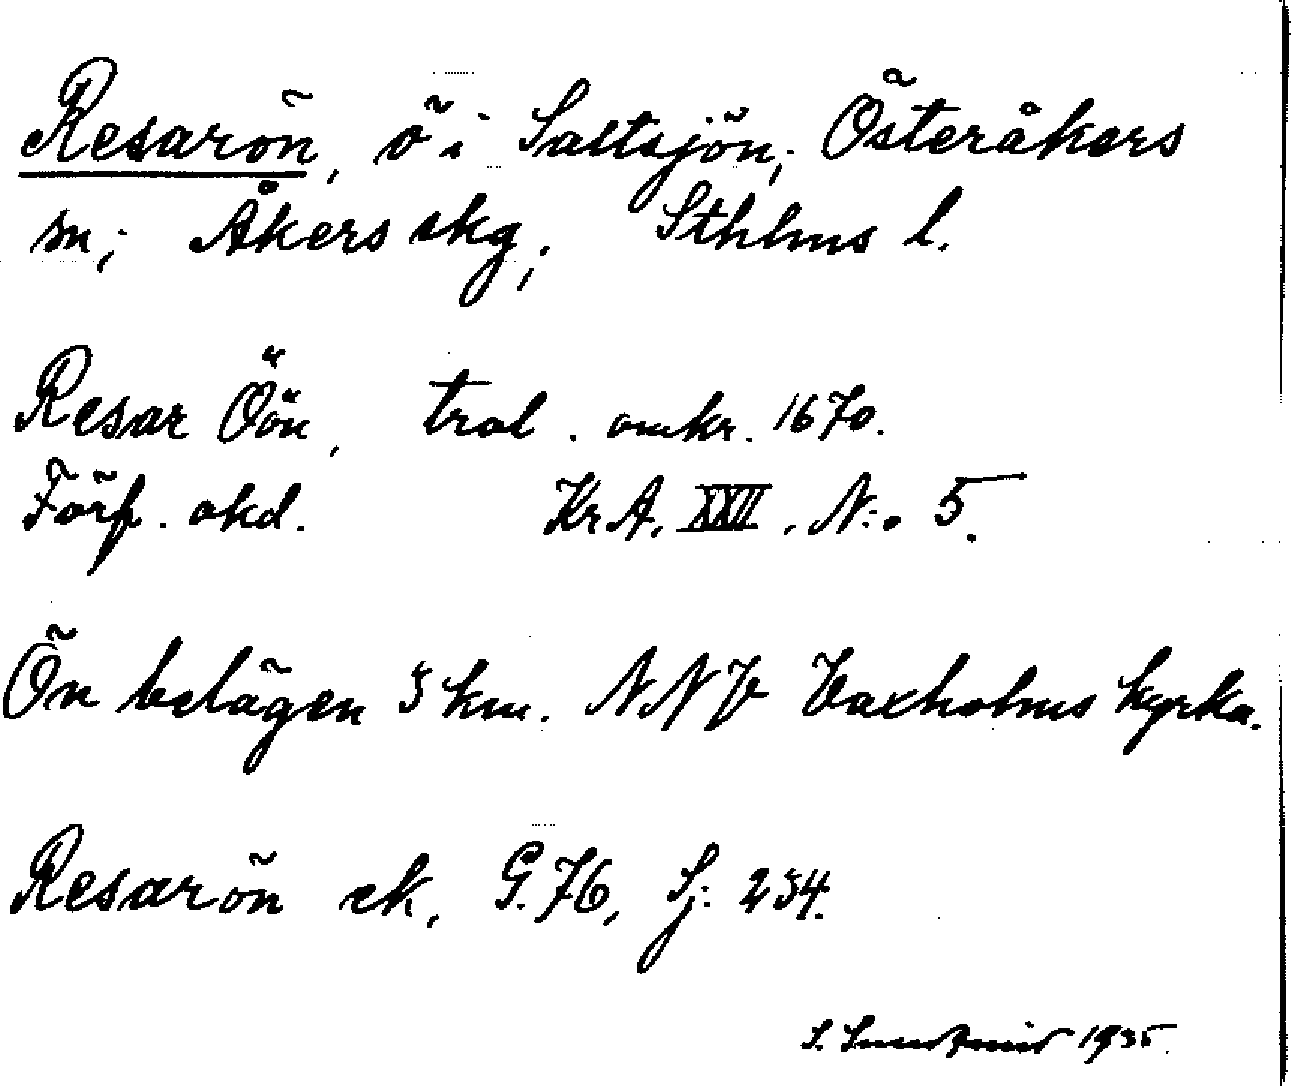 Resarön, ö i Saltsjön; Österåkers
sn; Åkers skg; Sthlms l.
Resar Öön, trol. omkr. 1670.
Förf. okd. KrA. XXII. N:o 5.
Ön belägen 5 km. NNV Vaxholms kyrka.
Resarön ek. G.76, Sj: 234.
S. 1935